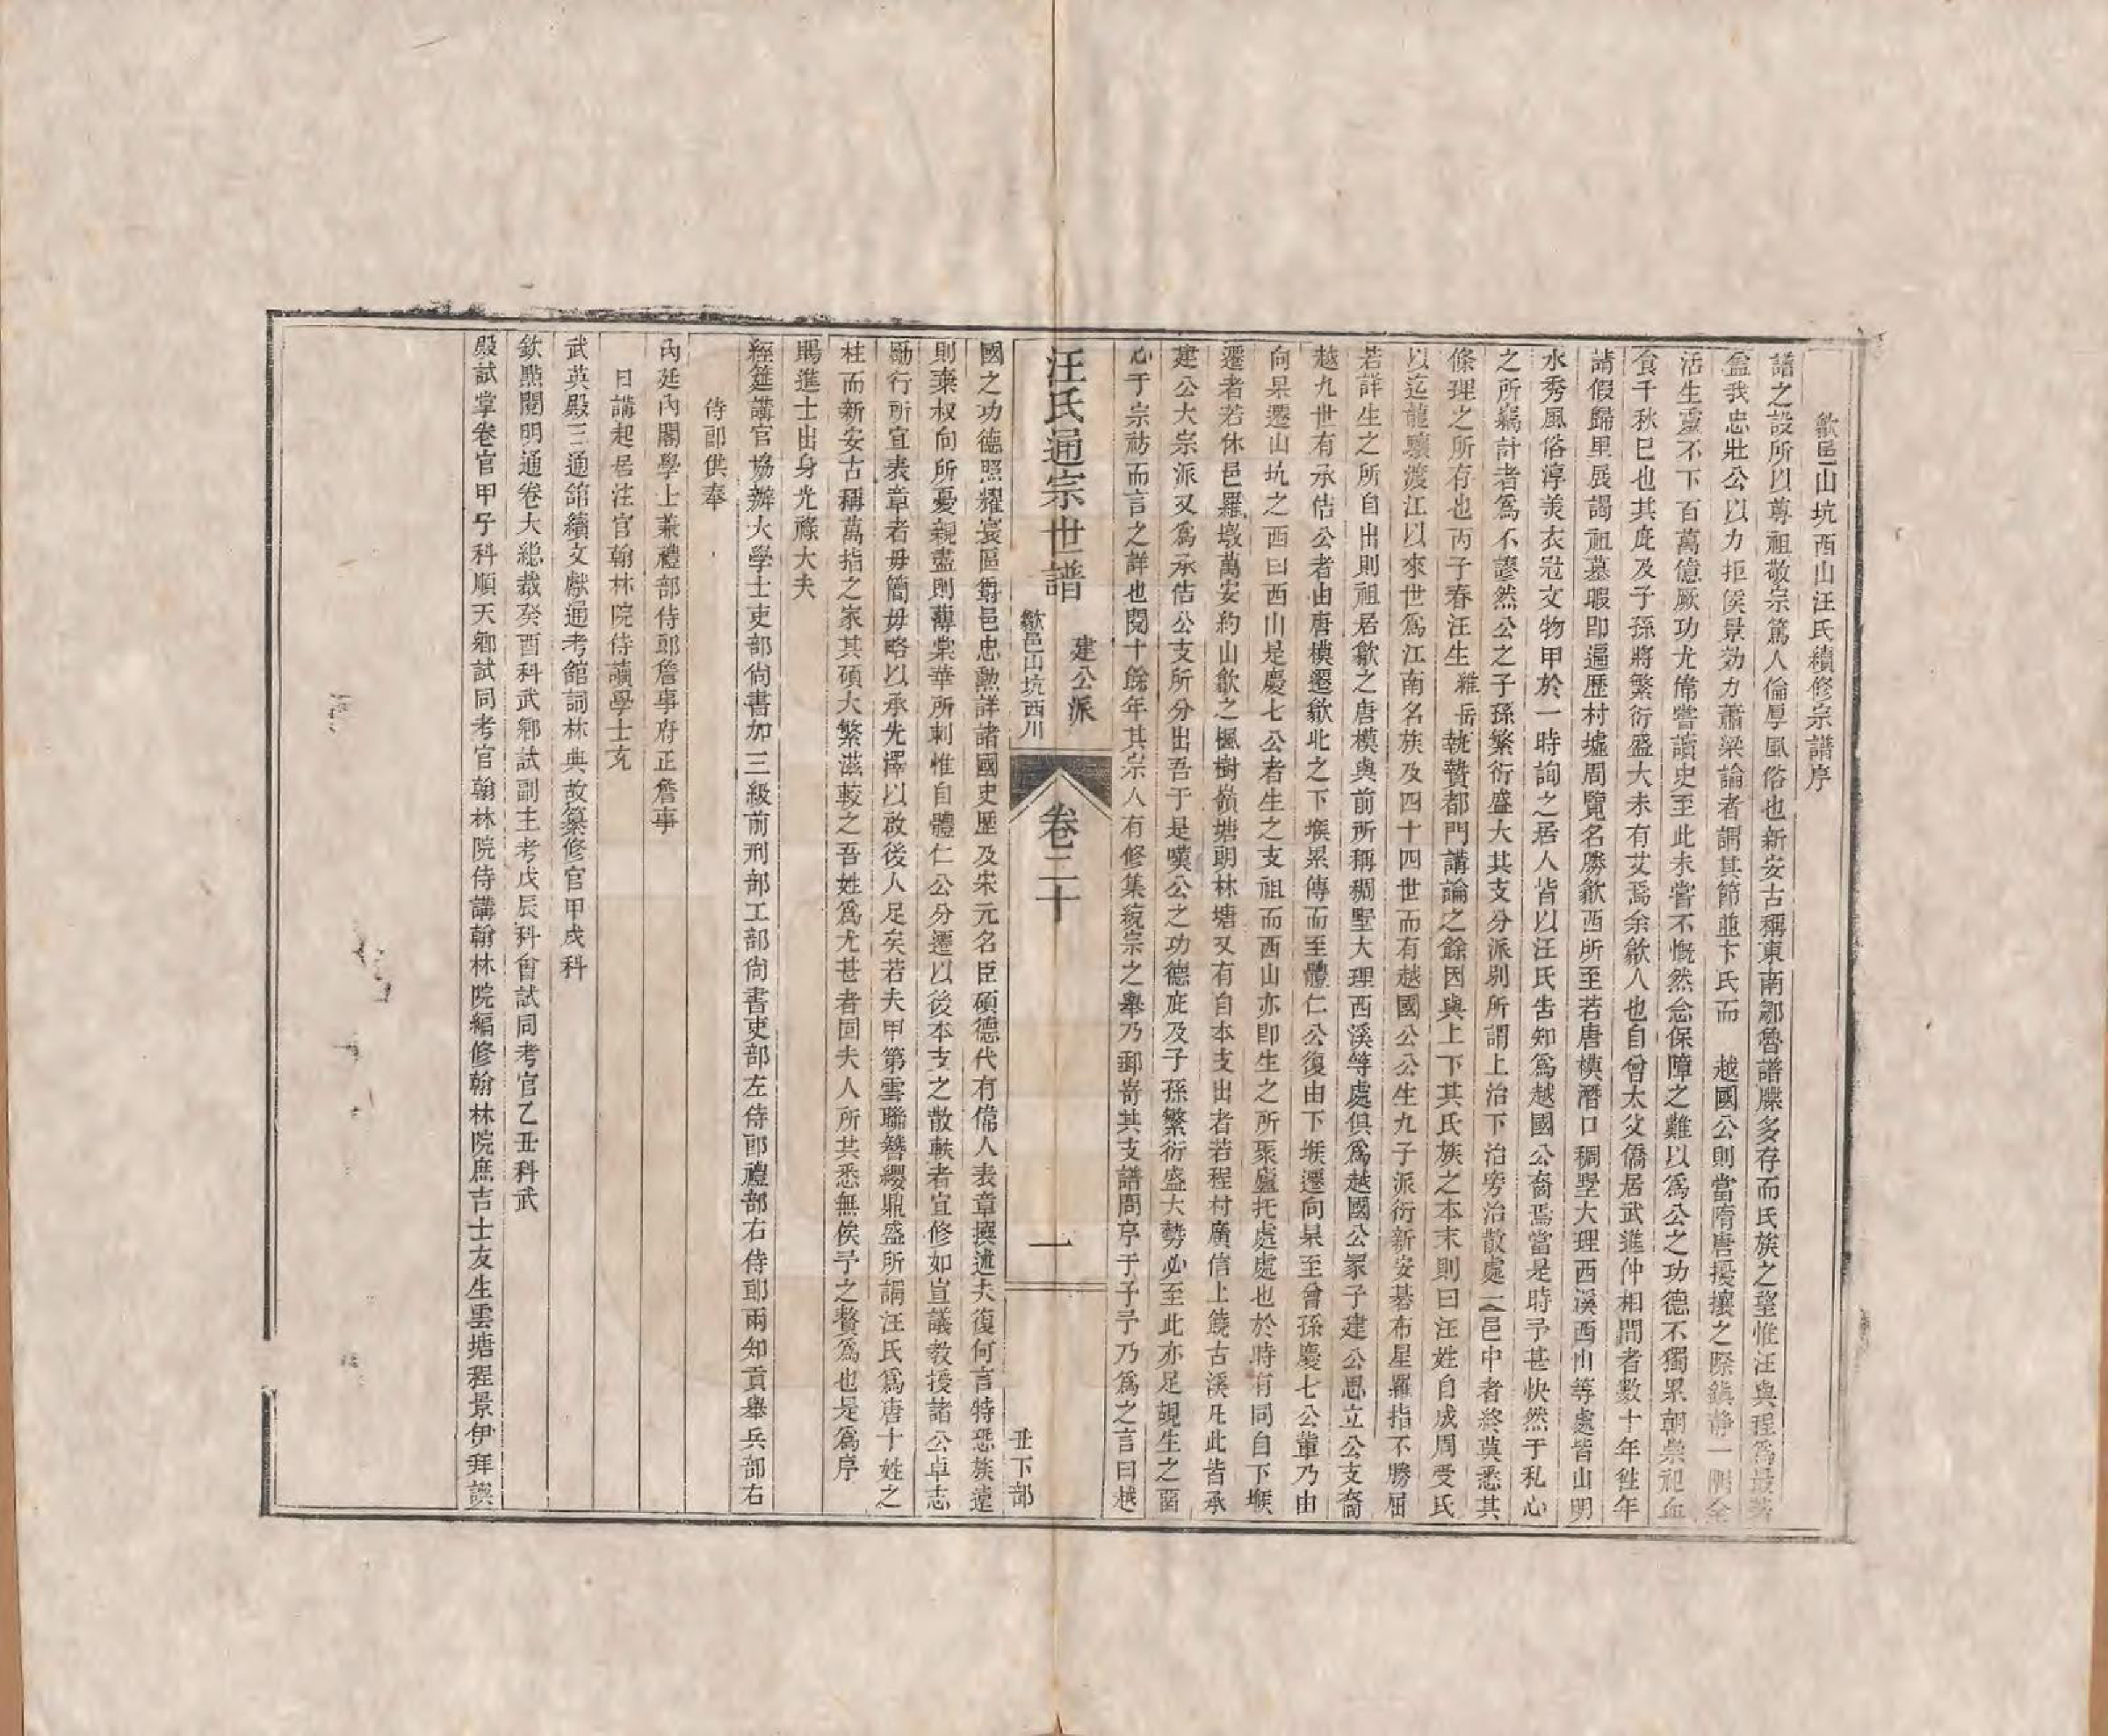 歙邑山坑西山汪氏續修宗譜序
譜之設所以尊祖敬宗篤人倫厚風俗也新安古稱東南鄒魯譜牒多存而氏族之望惟汪與程爲最著
葢我忠壯公以力拒侯景効力蕭梁論者謂其節並卞氏而　越國公則當隋唐擾攘之際鎮靜一隅全
活生靈不下百萬億厥功尤偉嘗讀史至此未嘗不慨然念保障之難以爲公之功德不獨累朝崇祀血
食千秋巳也其庇及子孫將繁衍盛大未有艾焉余歙人也自曾大父僑居武進仲相間者數十年徃年
請假歸里展謁祖墓暇即遍歴村墟周覽名勝歙西所至若唐模潛口稠墅大理西溪西山等處皆山明
水秀風俗淳美衣冠文物甲於一時詢之居人皆以汪氏告知爲越國公裔焉當是時予甚快然于私心
之所竊計者爲不謬然公之子孫繁衍盛大其支分派别所謂上治下治旁治散處一邑中者終莫悉其
條理之所存也丙子春汪生　維岳　執贄都門講論之餘因與上下其氏族之本末則曰汪姓自成周受氏
以迄龍驤渡江以來世爲江南名族及四十四世而有越國公公生九子派衍新安碁布星羅指不勝屈
若詳生之所自出則祖居歙之唐模與前所稱稠墅大理西溪等處俱爲越國公冢子建公思立公支裔
越九世有承佶公者由唐模遷歙北之下堠累傳而至體仁公復由下堠遷向杲至曾孫慶七公輩乃由
向杲遷山坑之西曰西山是慶七公者生之支祖而西山亦即生之所聚廬托處處也於時有同自下堠
遷者若休邑羅墩萬安約山歙之楓樹嶺塘朗林塘又有自本支出者若程村廣信上饒古溪凡此皆承
建公大宗派又爲承佶公支所分出吾于是嘆公之功德庇及子孫繁衍盛大勢必至此亦足覘生之畱
心于宗祊而言之詳也閱十餘年其宗人有修集統宗之舉乃郵寄其支譜問序于予予乃爲之言曰越
汪氏通宗世譜
建公派
歙邑山坑西川
卷二十
一
丗下部
國之功德照耀寰區爵邑忠勲詳諸國史歴及宋元名臣碩德代有偉人表章撰述夫復何言特恐族遠
則棄叔向所憂親盡則薄棠華所刺惟自體仁公分遷以後本支之散軼者宜修如豈議教授諸公卓志
勵行所宜表章者毋簡毋略以承先澤以啟後人足矣若夫甲第雲聯簪纓鼎盛所謂汪氏爲唐十姓之
柱而新安古稱萬指之家其碩大繁滋較之吾姓爲尤甚者固夫人所共悉無俟予之贅爲也是爲序
賜進士出身光祿大夫
經筵講官協辦大學士吏部尙書加三級前刑部工部尙書吏部左侍郎禮部右侍郎兩知貢舉兵部右
侍郎供奉
內廷內閣學上兼禮部侍郎詹事府正詹事
日講起居注官翰林院侍讀學士充
武英殿三通館續文獻通考館詞林典故纂修官甲戌科
欽㸃閱明通卷大總裁癸酉科武鄕試副主考戊辰科會試同考官乙丑科武
殿試掌卷官甲子科順天鄕試同考官翰林院侍講翰林院編修翰林院庶吉士友生雲塘程景伊拜譔